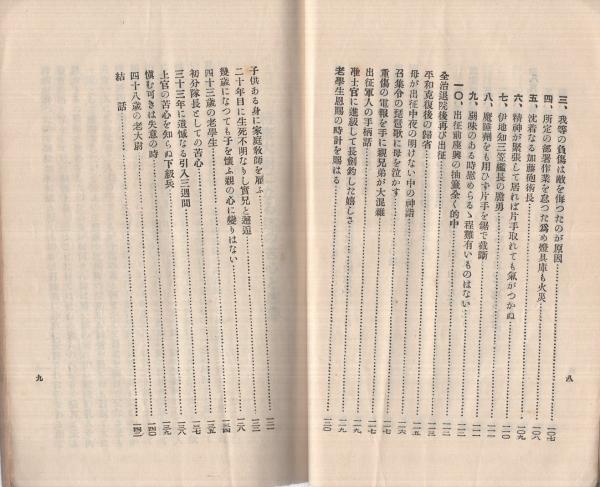 三、我等の負傷は敵を侮つたのが原因……一〇七
四、所定の部署作業を怠つた爲め燈具庫も火災……一〇八
五、沈着なる加藤砲術長……一〇八
六、精神が緊張して居れば片手取れても氣がつかぬ……一〇九
七、伊地知三笠艦長の膽勇……一一〇
八、魔睡劑をも用ひず片手を鋸で截斷……一一一
九、弱味のある時慰めらるゝ程難有いものはない……一一二
一〇、出征前座興の抽籤全く的中……一一三
全治退院後再び出征
平和克復後の歸省
母が出征中夜の明けない中の神詣
召集令の琵琶歌に母を泣かす……一一六
重傷の電報を手に親兄弟が大混雜……一一七
出征軍人の手柄話……一一七
准士官に進級して長劍釣した嬉しさ……一一九
老學生恩賜の時計を賜はる……一二〇
八
子供ある身に家庭敎師を雇ふ……一二一
二十年目に生死不明なりし實兄と邂逅……一二三
幾歲になつても子を懷ふ親の心に變りはない
四十三歲の老學生
初分隊長としての苦心
三十三年に遺憾なる引入三週間……一三八
上官の苦心を知らぬ下級兵……一三九
愼む可きは失意の時……一四〇
四十八歲の老大尉
結話
九